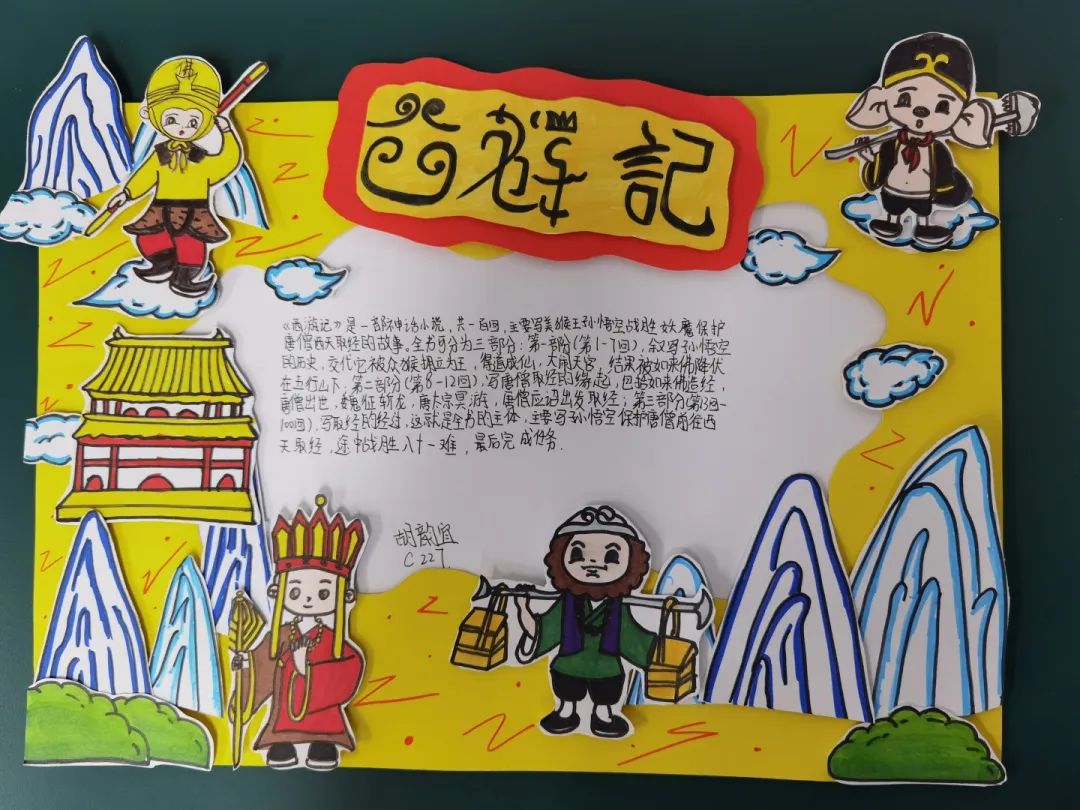 西遊記
佛
《西游记》是一部神话小说，共一百回，主要写美猴王孙悟空战胜妖魔保护
唐僧西天取经的故事。全书可分为三部分：第一部分(第1-7回)，叙写孙悟空
的历史，交代它被众猴拥立为王，得道成仙，大闹天宫，结果被如来佛降伏
在五行山下，第二部分(第8-12回)，写唐僧取经的缘起，包括如来佛造经，
唐僧出世，魏征斩龙，唐太宗冥游，唐僧应诏出发取经；第三部分(第13回-
100回)，写取经的经过，这就是全书的主体，主要写孙悟空保护唐僧前往西
天取经，途中战胜八十一难，最后完成任务.
胡韵宜
C227.